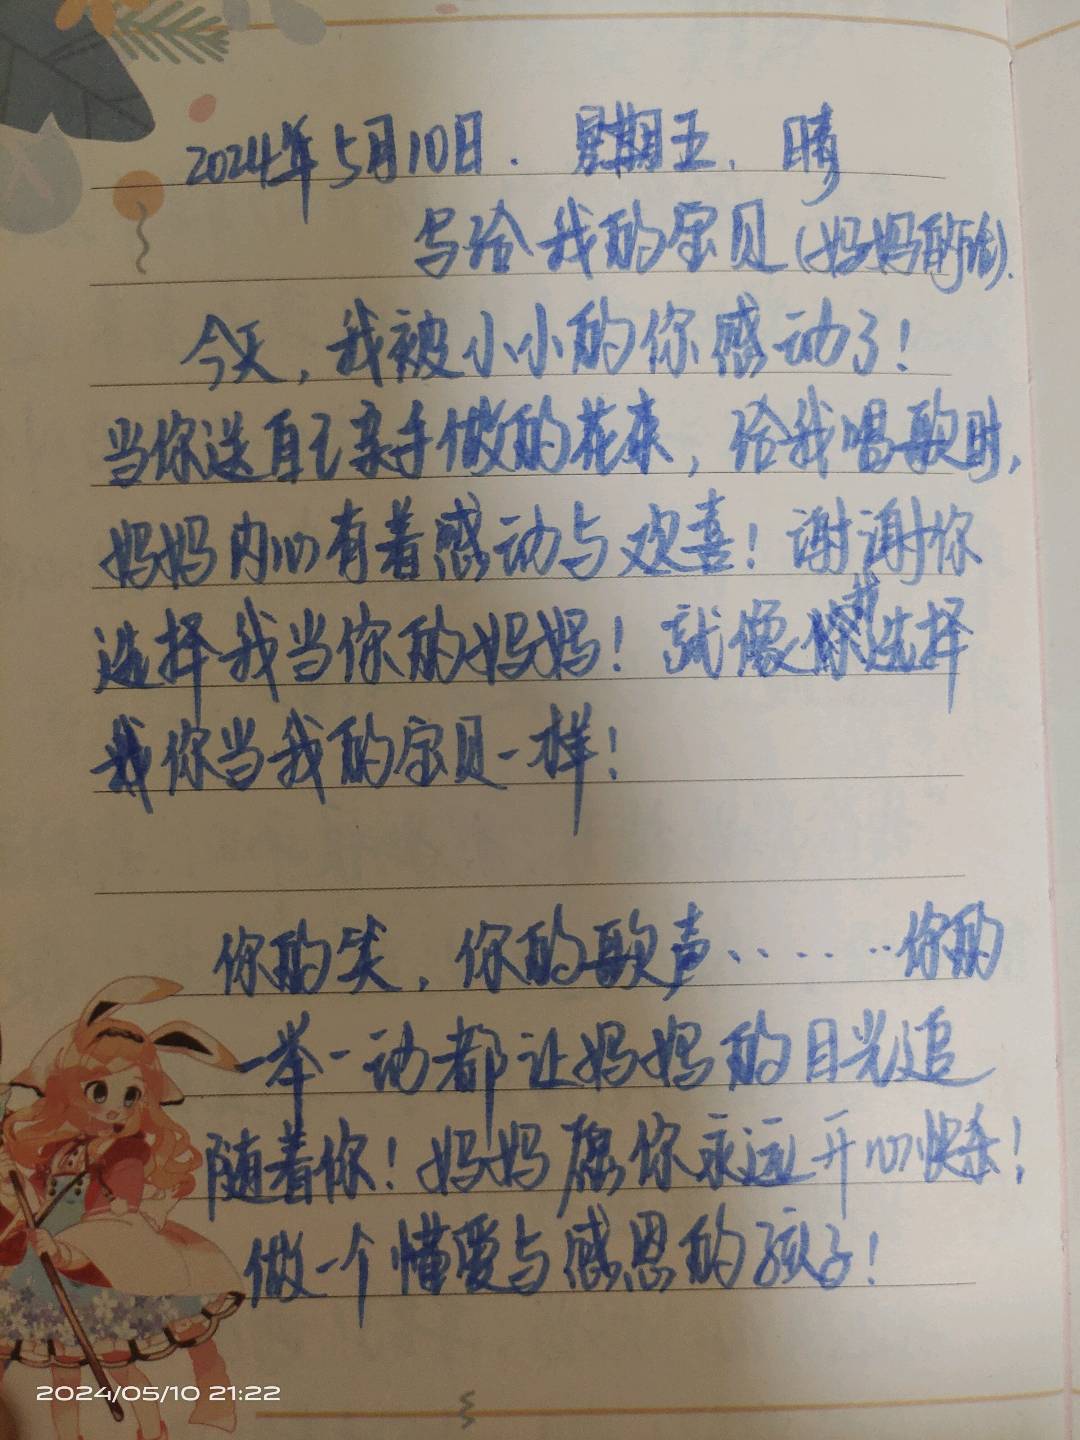 2024年5月10日. 星期五. 晴
写给我的宝贝(妈妈的话).
今天,我被小小的你感动了!
当你送自己亲手做的花束,给我唱歌时,
妈妈内心有着感动与欢喜!谢谢你
选择我当你的妈妈!就像我选择
你当我的宝贝一样!
你的笑,你的歌声......你的
一举一动都让妈妈的目光追
随着你!妈妈愿你永远开心快乐!
做一个懂爱与感恩的孩子!
2024/05/10 21:22